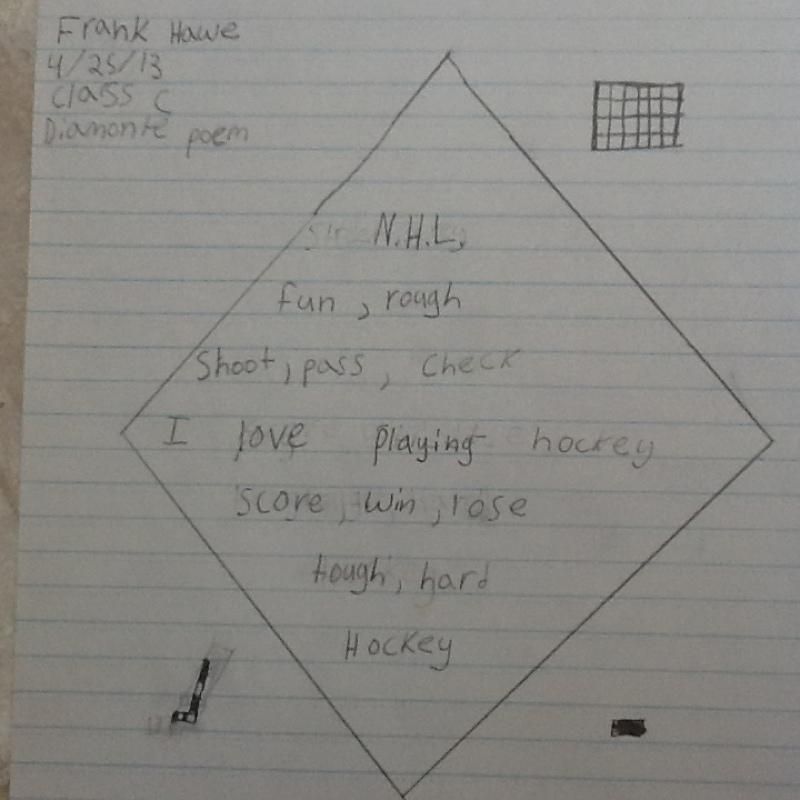 Frank Hawe
4/25/13
Class C
Diamonte poem
N.H.L,
fun, rough
Shoot, pass, check
I love playing hockey
Score, win, rose
tough, hard
Hockey